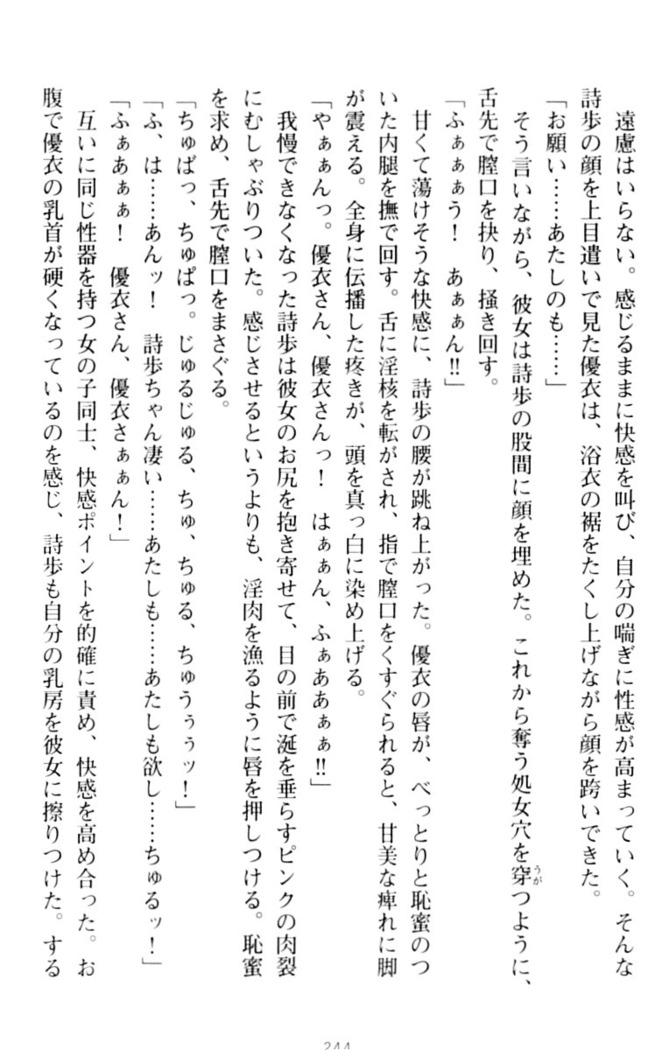 遠慮はいらない。感じるままに快感を叫び、自分の喘ぎに性感が高まっていく。そんな
詩歩の顔を上目遣いで見た優衣は、浴衣の裾をたくし上げながら顔を跨いできた。
「お願い……あたしのも……」
そう言いながら、彼女は詩歩の股間に顔を埋めた。これから奪う処女穴を穿つように、
うが
舌先で膣口を抉り、掻き回す。
「ふぁぁぁう！　あぁぁん!!」
甘くて蕩けそうな快感に、詩歩の腰が跳ね上がった。優衣の唇が、べっとりと恥蜜のつ
いた内腿を撫で回す。舌に淫核を転がされ、指で膣口をくすぐられると、甘美な痺れに脚
が震える。全身に伝播した疼きが、頭を真っ白に染め上げる。
「やぁぁんっ。優衣さん、優衣さんっ！　はぁぁん、ふぁああぁぁ!!」
我慢できなくなった詩歩は彼女のお尻を抱き寄せて、目の前で涎を垂らすピンクの肉裂
にむしゃぶりついた。感じさせるというよりも、淫肉を漁るように唇を押しつける。恥蜜
を求め、舌先で膣口をまさぐる。
「ちゅぱっ、ちゅぱっ。じゅるじゅる、ちゅ、ちゅる、ちゅうぅぅッ！」
「ふ、は……あんッ！　詩歩ちゃん凄い……あたしも……あたしも欲し……ちゅるッ！」
「ふぁあぁぁ！　優衣さん、優衣さぁぁん！」
互いに同じ性器を持つ女の子同士、快感ポイントを的確に責め、快感を高め合った。お
腹で優衣の乳首が硬くなっているのを感じ、詩歩も自分の乳房を彼女に擦りつけた。する
244